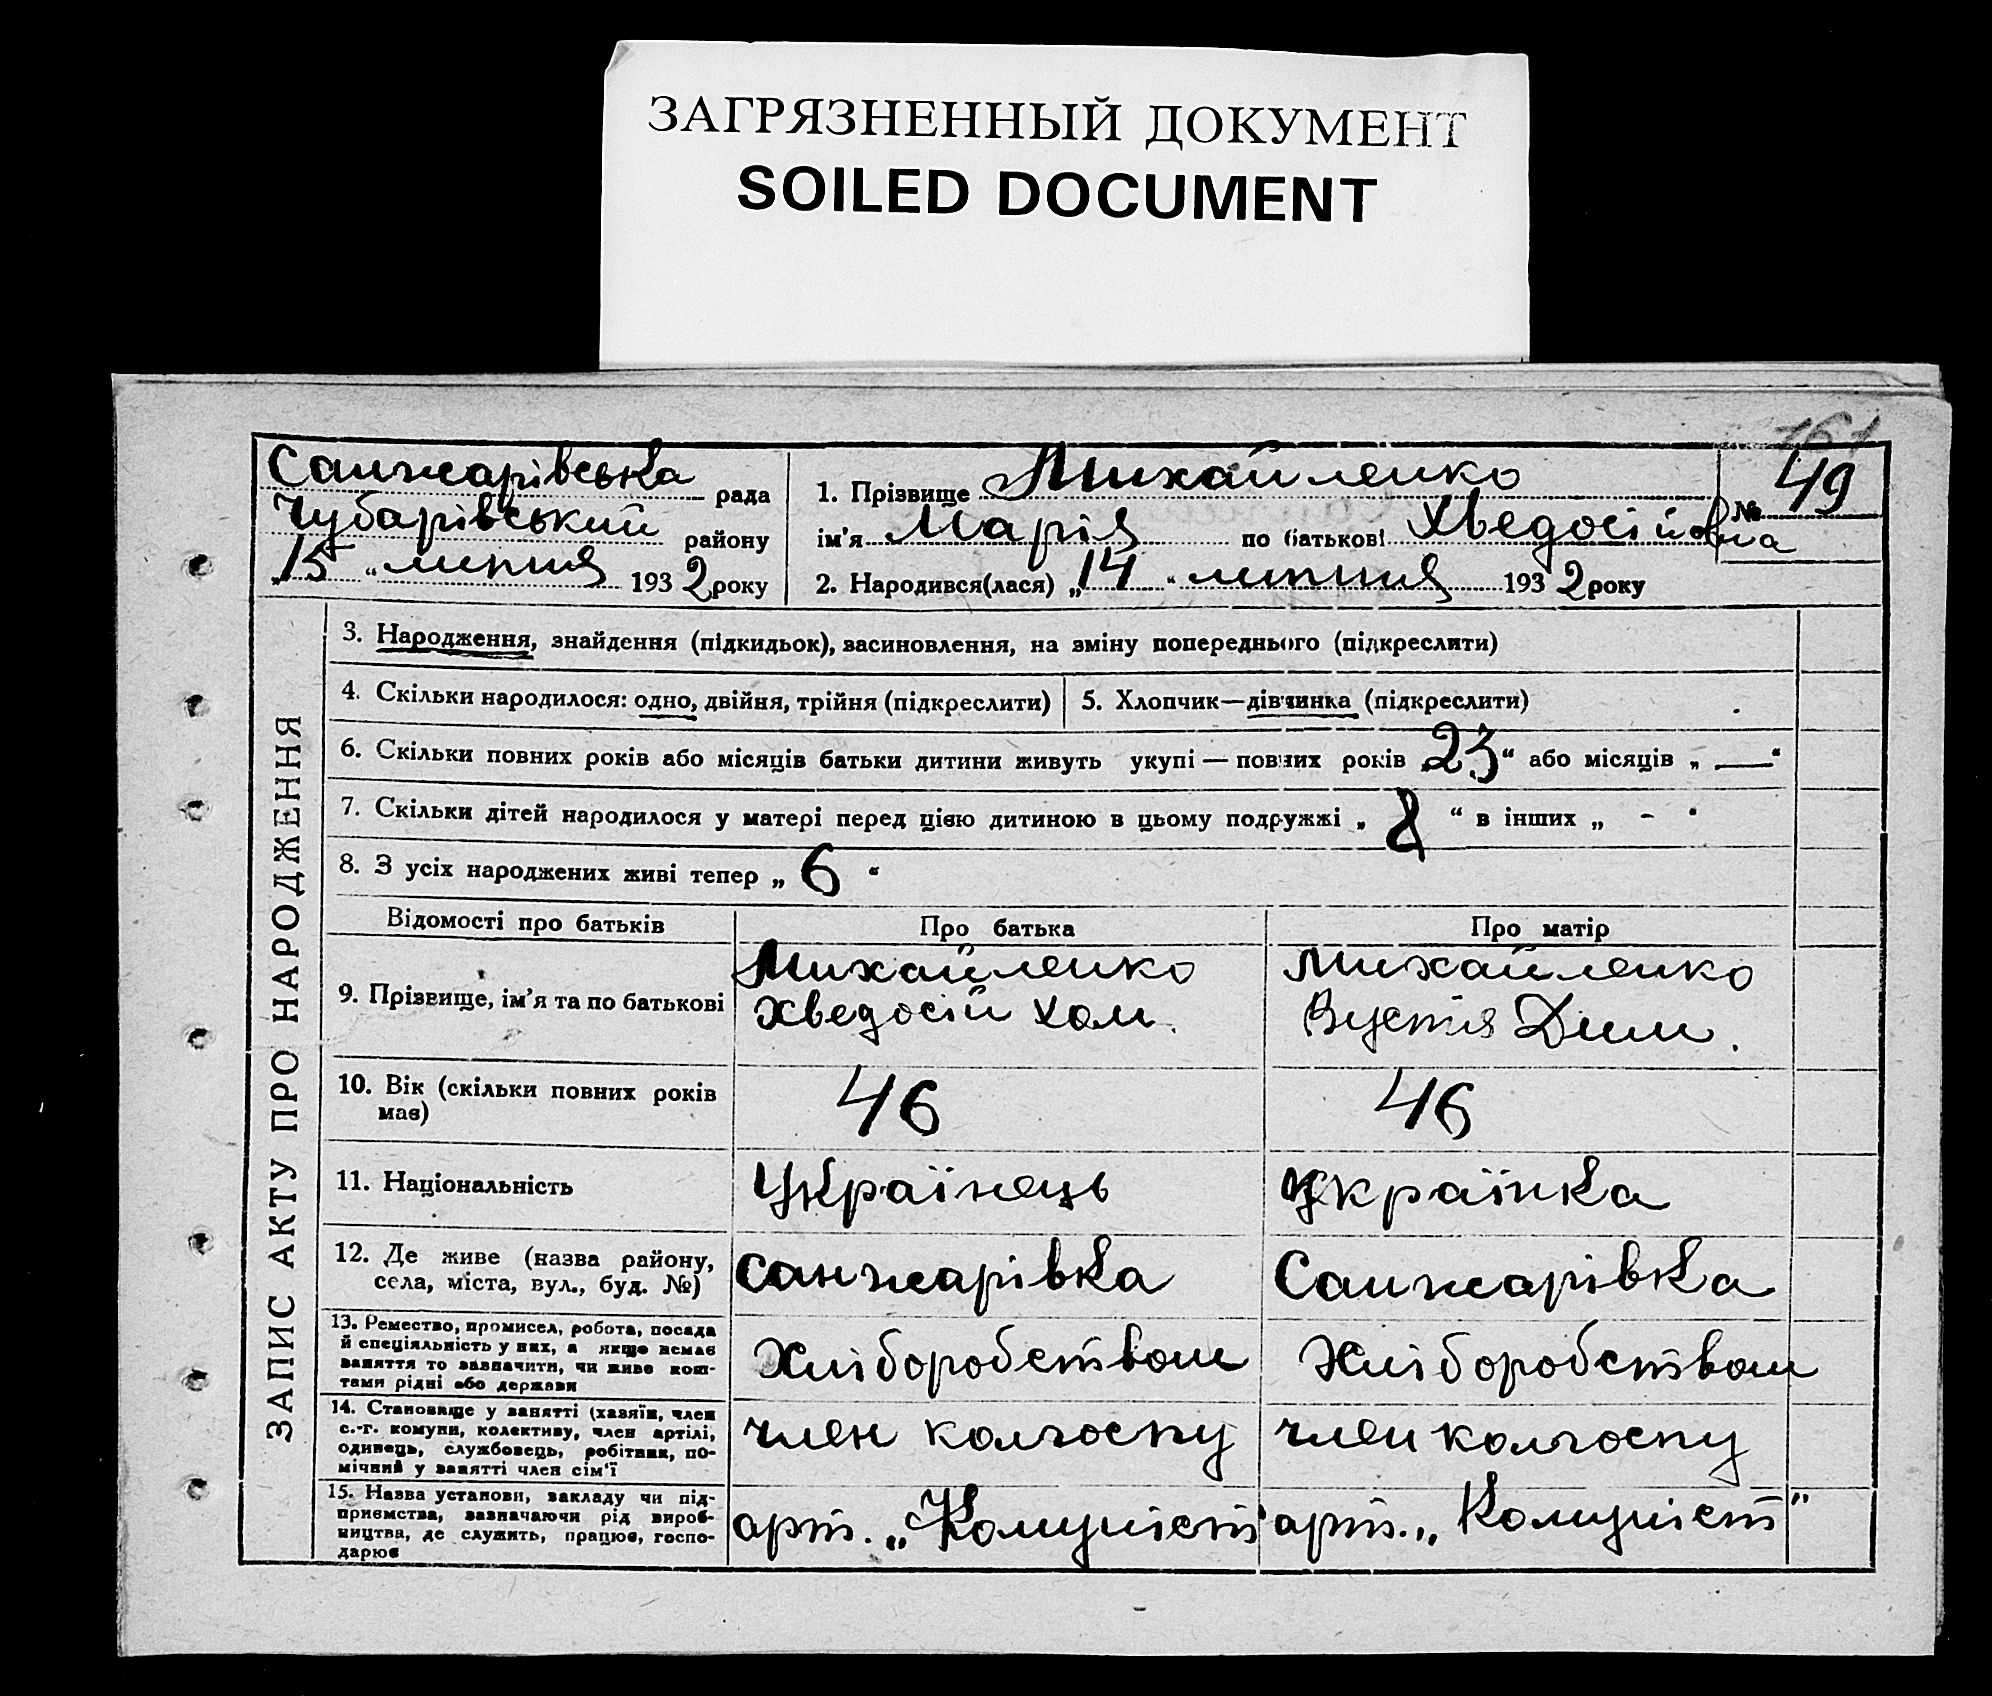 ЗАГРЯЗНЕННЫЙ ДОКУМЕНТ
SOILED DOCUMENT
161
Санжарівська рада
Чубарівський району
„15“ липня 1932 року
1. Прізвище Михайленко
№ 49
ім'я Марія по батькові Хведосіївна
2. Народився(лася) „14“ липня 1932 року
ЗАПИС АКТУ ПРО НАРОДЖЕННЯ
3. Народження, знайдення (підкидьок), засиновлення, на зміну попереднього (підкреслити)
4. Скільки народилося: одно, двійня, трійня (підкреслити)
5. Хлопчик—дівчинка (підкреслити)
6. Скільки повних років або місяців батьки дитини живуть укупі — повних років „23“ або місяців „—“
7. Скільки дітей народилося у матері перед цією дитиною в цьому подружжі „8“ в інших „-“
8. З усіх народжених живі тепер „6“
Відомості про батьків
Про батька
Про матір
9. Прізвище, ім'я та по батькові
Михайленко
Хведосій Хом.
Михайленко
Вустія Дим.
10. Вік (скільки повних років
має)
46
46
11. Національність
Українець
Українка
12. Де живе (назва району,
села, міста, вул., буд. №)
Санжарівка
Санжарівка
13. Ремество, промисел, робота, посада
й спеціяльність у них, а якщо немає
заняття то зазначити, чи живе кош-
тами рідні або держави
Хліборобством
Хліборобством
14. Становище у занятті (хазяїн, член
с.-г. комуни, колективу, член артілі,
одинець, службовець, робітник, по-
мічний у занятті член сім'ї
член колгоспу
член колгоспу
15. Назва установи, закладу чи під-
приємства, зазначаючи рід вироб-
ництва, де служить, працює, госпо-
дарює
арт. „Комуніст"
арт. „Комуніст"